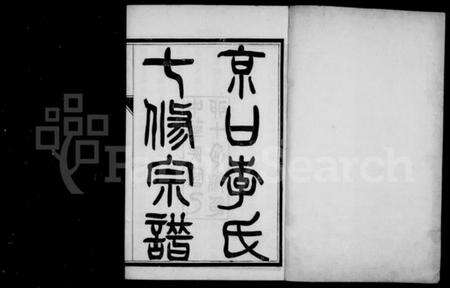 京口李氏
七修宗譜
FamilySearch